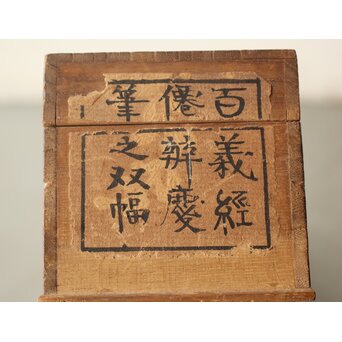 百僊筆
義經
辨慶
之双幅